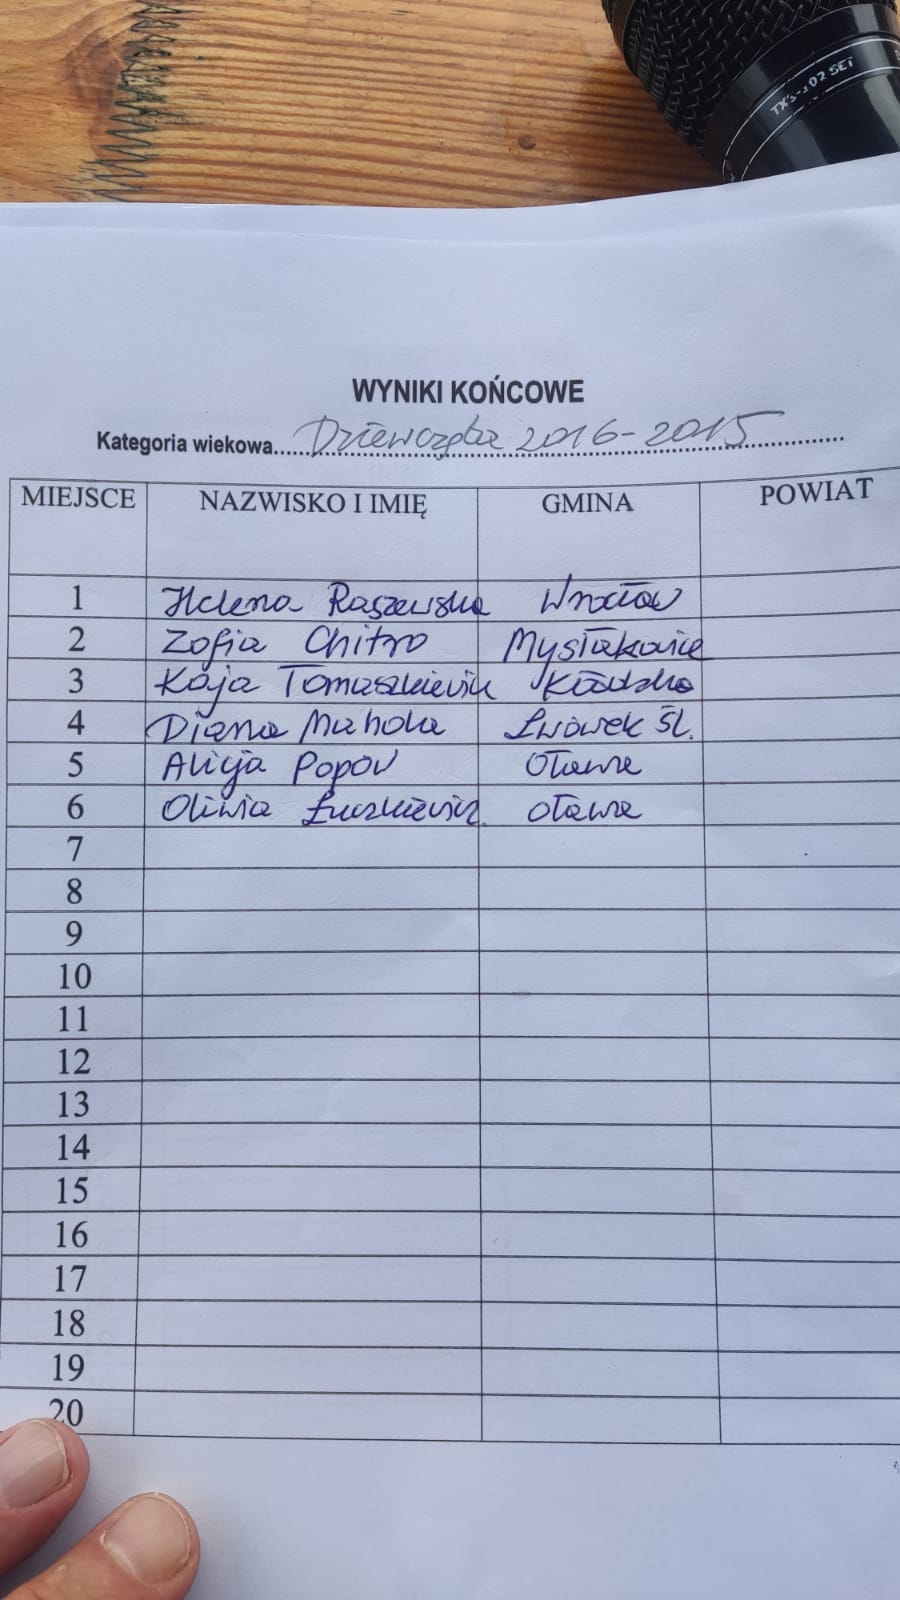 TXS-202 SET
WYNIKI KOŃCOWE
Kategoria wiekowa.....Dziewczęta 2016-2015
MIEJSCE NAZWISKO I IMIĘ GMINA POWIAT
1 Helena Raszewska Wrocław
2 Zofia Chitro Mysłakowice
3 Kaja Tomaszkiewicz Kłodzko
4 Diana Mahola Lwówek Śl.
5 Alicja Popov Oława
6 Oliwia Łuszkiewicz Oława
7
8
9
10
11
12
13
14
15
16
17
18
19
20